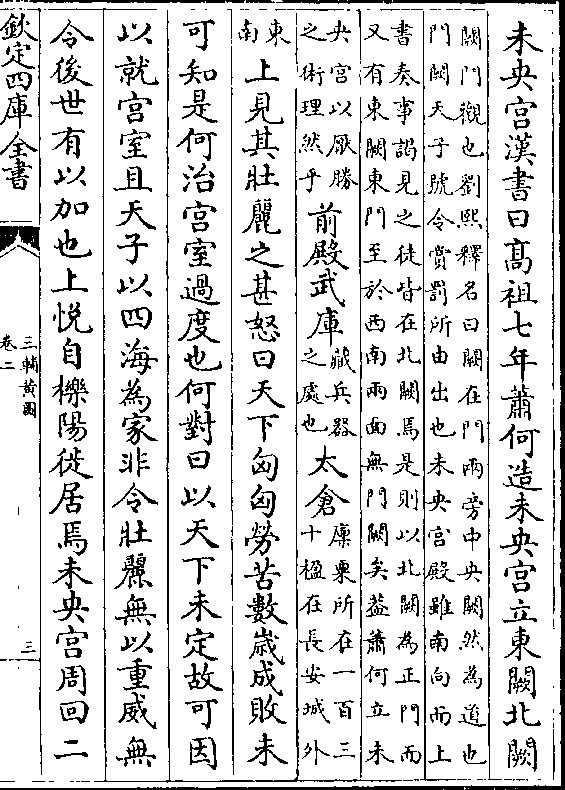 未央宫漢書曰髙祖七年蕭何造未央宫立東闕北闕
闕門觀也劉熙釋名曰闕在門兩旁中央闕然為道也
門闕天子號令賞罰所由出也未央宫殿雖南向而上
書奏事謁見之徒皆在北闕焉是則以北闕為正門而
又有東闕東門至於西南兩面無門闕矣蓋蕭何立未
央宫以厭勝
之術理然乎
前殿武庫
藏兵器
之處也
太倉
廩粟所在一百三
十楹在長安城外
東
南
上見其壯麗之甚怒曰天下匈匈勞苦數歲成敗未
可知是何治宫室過度也何對曰以天下未定故可因
以就宫室且天子以四海為家非令壯麗無以重威無
令後世有以加也上悦自櫟陽徙居焉未央宫周回二
欽定四庫全書
三輔黄圖
卷二
三